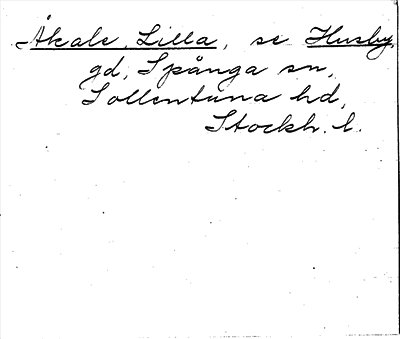 Åkale, Lilla, se Husby,
gd, Spånga sn,
Sollentuna hd,
Stockh. l.